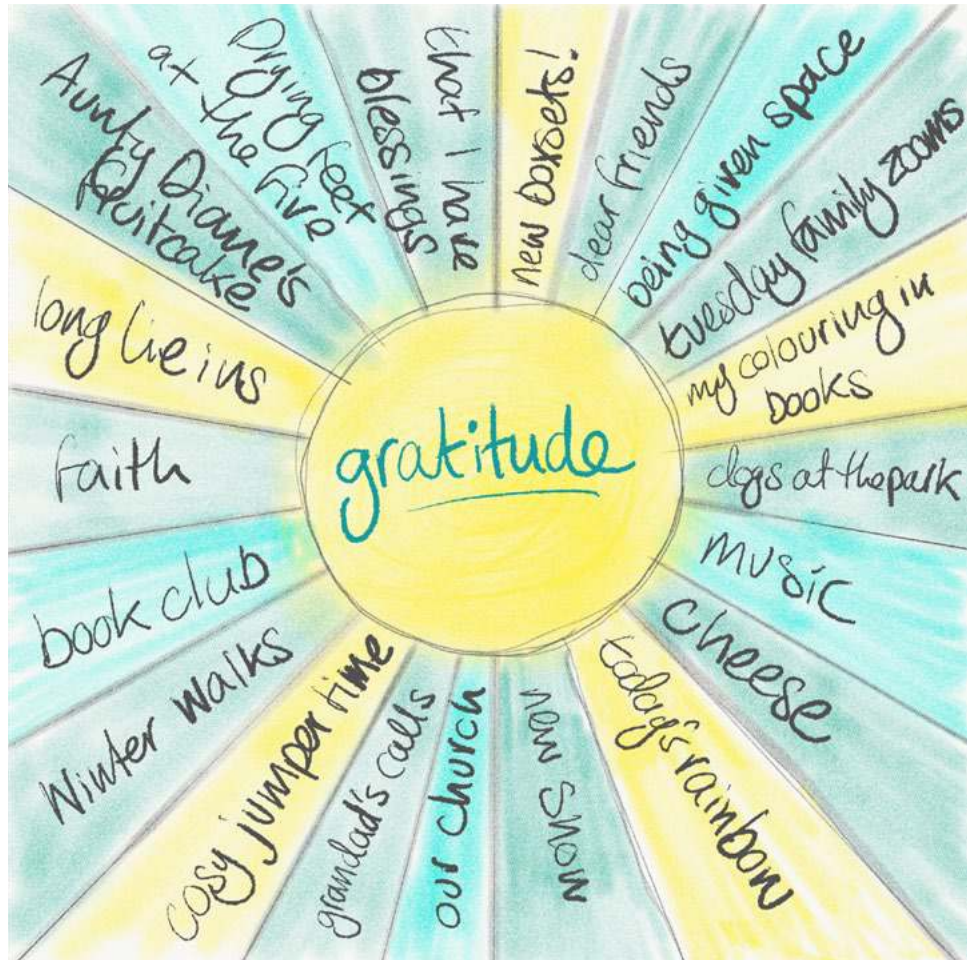 gratitude
new boxsets!
dear friends
being given space
tuesday family zooms
my colouring in
books
dogs at the park
music
cheese
today's rainbow
new snow
our church
grandad's calls
cosy jumper time
Winter walks
book club
faith
long lie ins
Aunty Diane's
fruitcake
Drying feet
at the fire
that I have
blessings